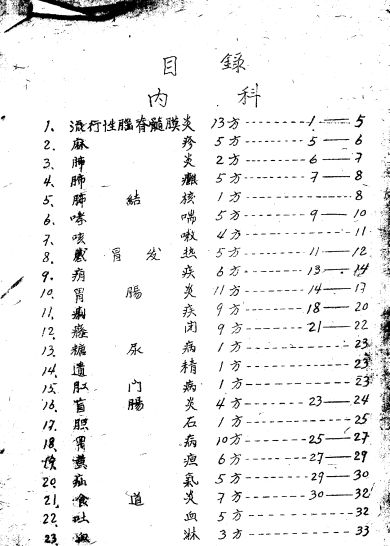 目 錄
内 科
1、流行性腦脊髓膜炎 13方 1——5
2、麻 疹 5方 5——6
3、肺 炎 2方 6——7
4、肺 癰 5方 7——8
5、肺 結 核 1方 8
6、哮 喘 5方 9——10
7、咳 嗽 4方 11
8、感 冒 发 热 5方 11——12
9、痢 疾 6方 13——14
10、胃 腸 炎 11方 14——17
11、疾 9方 18——20
12、癃 闭 9方 21——22
13、糖 尿 病 1方 23
14、遺 精 1方 23
15、肛 门 病 1方 23
16、盲 腸 炎 4方 23——24
17、胆 石 1方 25
18、胃 病 10方 25——27
19、黄 疸 6方 27——29
20、疝 氣 5方 29——30
21、食 道 炎 7方 30——32
22、吐 血 5方 32
23、淋 3方 33